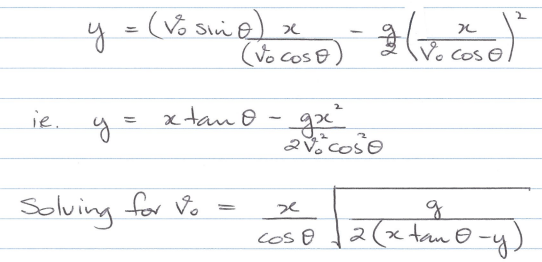 y = (v₀ sin θ) x / (v₀ cos θ) − g/2 (x / (v₀ cos θ))²
ie. y = x tan θ − gx² / (2 v₀² cos² θ)
Solving for v₀ = x / cos θ √(g / (2(x tan θ − y)))